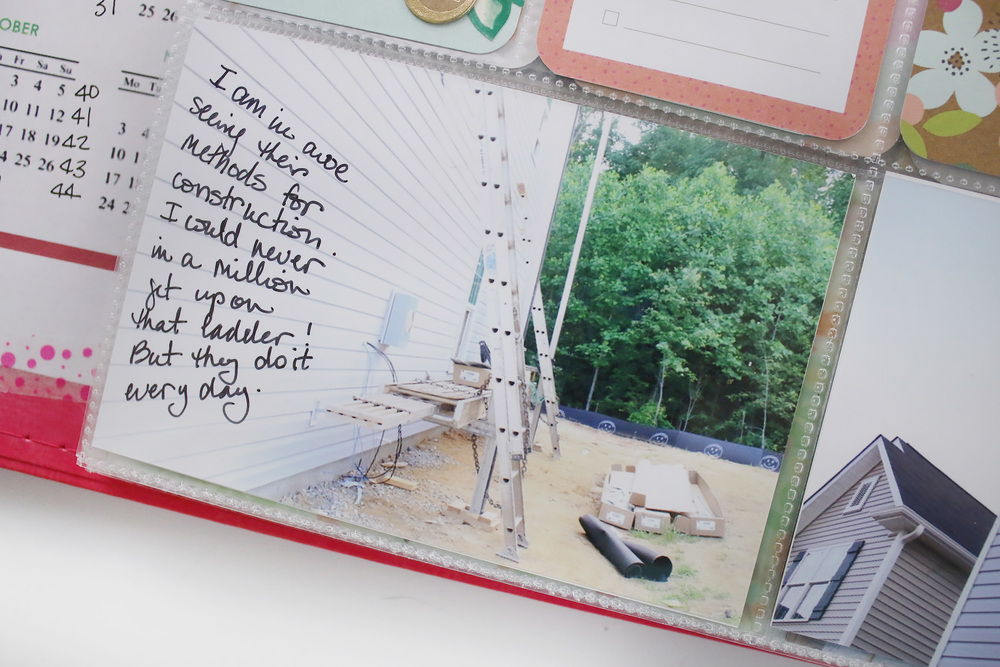 31 25 26
OBER
Fr Sa Su
3 4 5 40
10 11 12 41
17 18 19 42
24 25 26 43
44
Mo Tu
3 4
10 1
17 18
24 2
I am in awe
seeing their
methods for
construction.
I could never
in a million
get up on
that ladder!
But they do it
every day.